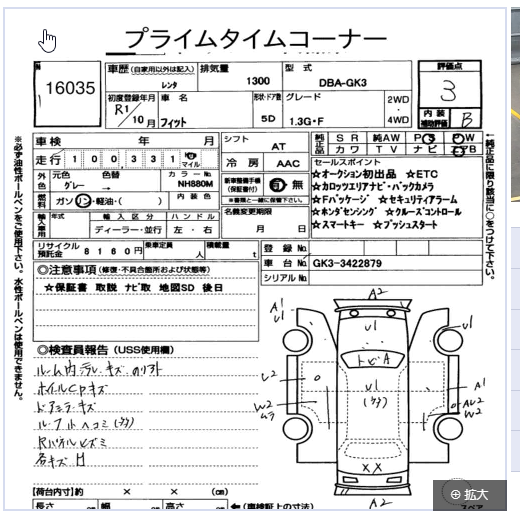 プライムタイムコーナー
№ 16035
車歴 (自家用以外は記入) レンタ
排気量 1300
型式 DBA-GK3
評価点 3
初度登録年月 R1/10月
車名 フィット
形状・ドア数 5D
グレード 1.3G・F
2WD
4WD
内装補助評価 B
車検 年 月
シフト AT
純正品 SR 純AW PS PW
カワ TV ナビ エアB
走行 100,331 km マイル
冷房 AAC
セールスポイント
☆オークション初出品 ☆ETC
☆カロッツエリアナビ・バックカメラ
☆Fパッケージ ☆セキュリティアラーム
☆ホンダセンシング ☆クルーズコントロール
☆スマートキー ☆プッシュスタート
外色 元色 グレー → 色替
カラーNo. NH880M
新車整備手帳 (保証書付) 有 無
※書類と一緒に保管下さい。
燃料 ガソリン・軽油・( )
内装色
名義変更期限 月 日
輸入車用 年式 輸入区分 ディーラー・並行
ハンドル 左・右
リサイクル預託金 8160円
乗車定員 人
積載量 t
登録№
車台№ GK3-3422879
シリアル№
◎注意事項 (修復・不具合箇所および状態等)
☆保証書 取説 ナビ取 地図SD 後日
◎検査員報告 (USS使用欄)
ホイルCPキズ
ルーフ
各キズ
※必ず油性ボールペンをご使用下さい。水性ボールペンは使用できません。
←純正品に限り該当に○をつけて下さい。
A2
A1
U1
U1
U1
トビA
U2
U1
A1
W2
ムラ
AU2
W2
XX
A2
【荷台内寸】約 × × (cm)
長さ cm 幅 cm 高さ cm ←(車検証上の寸法)
スペア
拡大